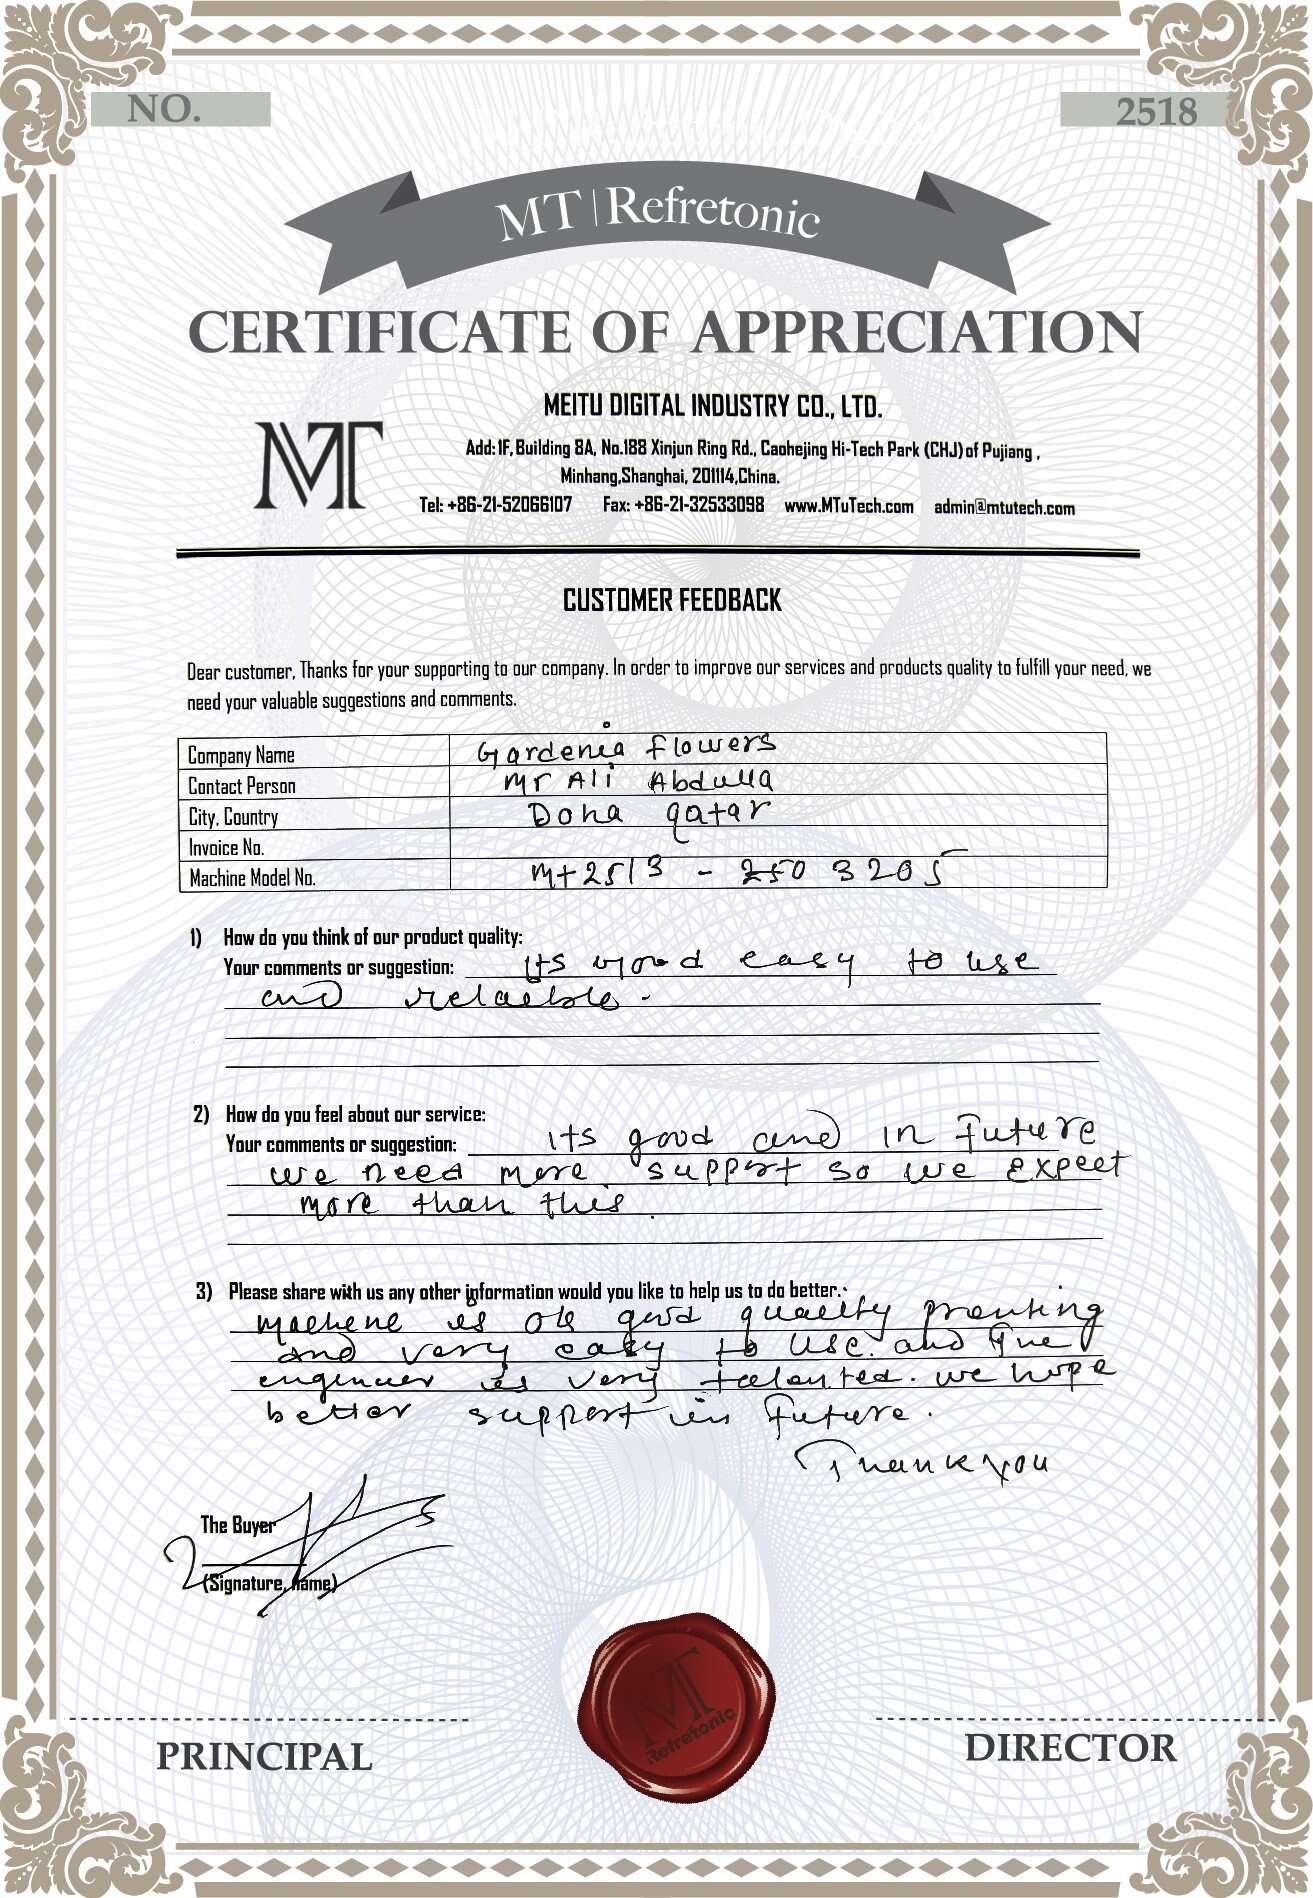 NO.
2518
MT | Refretonic
CERTIFICATE OF APPRECIATION
MT
MEITU DIGITAL INDUSTRY CO., LTD.
Add: 1F, Building 8A, No.188 Xinjun Ring Rd., Caohejing Hi-Tech Park (CHJ) of Pujiang ,
Minhang,Shanghai, 201114,China.
Tel: +86-21-52066107 Fax: +86-21-32533098 www.MTuTech.com admin@mtutech.com
CUSTOMER FEEDBACK
Dear customer, Thanks for your supporting to our company. In order to improve our services and products quality to fulfill your need, we
need your valuable suggestions and comments.
Company Name Gardenia flowers
Contact Person Mr Ali Abdulla
City, Country Doha qatar
Invoice No.
Machine Model No. Mt2513 - 2503205
1) How do you think of our product quality:
Your comments or suggestion: its good easy to use
and relaeble.
2) How do you feel about our service:
Your comments or suggestion: its good and in future
we need more support so we expect
more than this.
3) Please share with us any other information would you like to help us to do better.
Machene is ok good quality prenting
and very easy to use. and the
engineer is very talented. we hope
better support in future.
Thank you
The Buyer
(Signature, name)
MT
Refretonic
PRINCIPAL
DIRECTOR